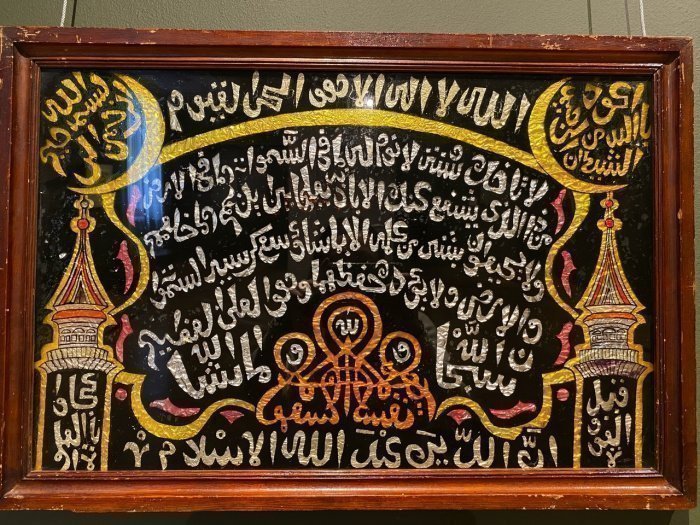 اعوذ بالله من الشيطان
بسم الله الرحمن الرحيم
الله لا اله الا هو الحي القيوم
لا تاخذه سنة ولا نوم له ما في السموات وما في الارض
من ذا الذي يشفع عنده الا باذنه يعلم ما بين ايديهم وما خلفهم
ولا يحيطون بشئ من علمه الا بماشاء وسع كرسيه السموات
والارض ولا يؤده حفظهما وهو العلي العظيم
سبحان الله
الله
ماشا الله
قبل الفوت
ان الدين عند الله الاسلام